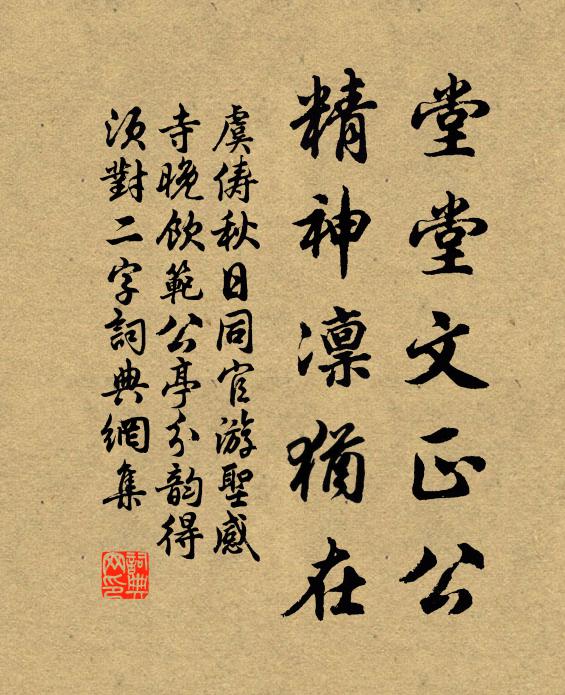 堂堂文正公
精神凛猶在
虞儔秋日同官游聖感
寺晚飲範公亭分韵得
須對二字詞典網集
詞典
网印